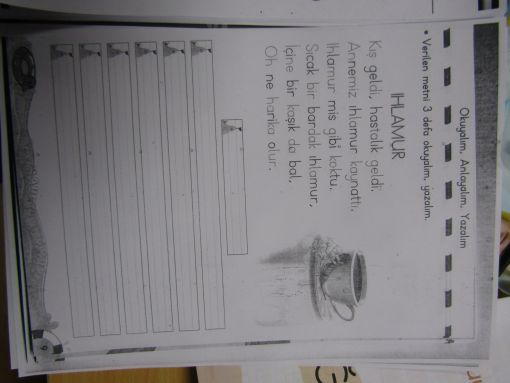 Okuyalım, Anlayalım, Yazalım
• Verilen metni 3 defa okuyalım, yazalım.
IHLAMUR
Kış geldi, hastalık geldi.
Annemiz ıhlamur kaynattı.
Ihlamur mis gibi koktu.
Sıcak bir bardak ıhlamur,
İçine bir kaşık da bal,
Oh ne harika olur.